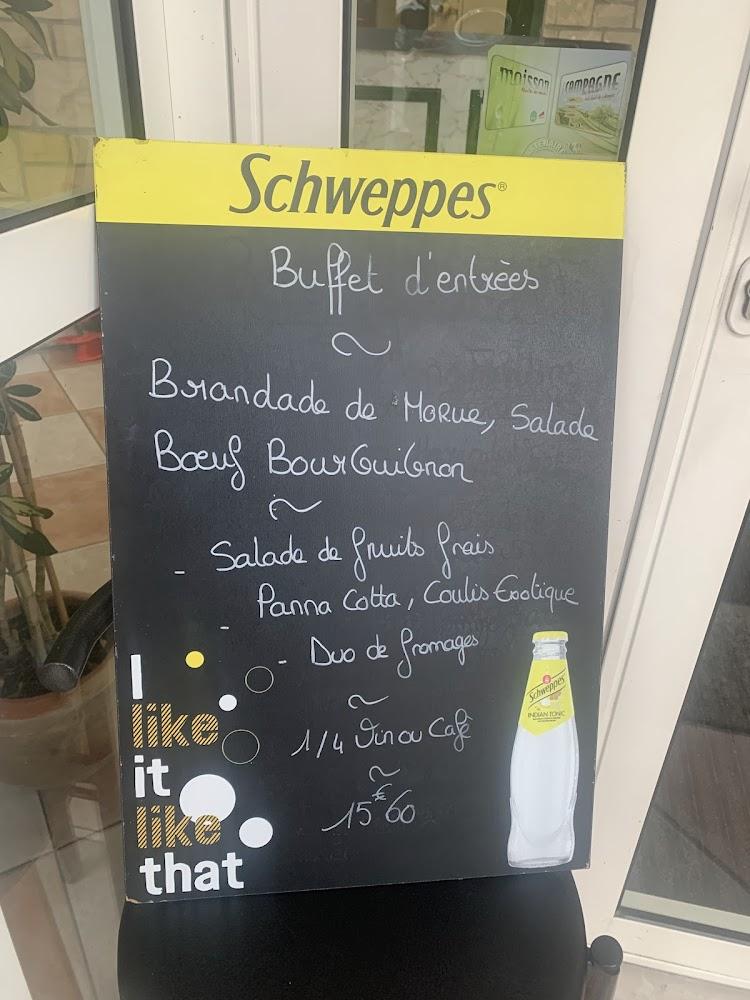 moisson
CAMPAGNE
Schweppes®
Buffet d'entrèes
~
Brandade de Morue, Salade
Bœuf BourGuiGnon
~
- Salade de fruits frais
- Panna Cotta, Coulis Exotique
- Duo de fromages
~
1/4 Vin ou Café
~
15€60
I
like
it
like
that
Schweppes
INDIAN TONIC